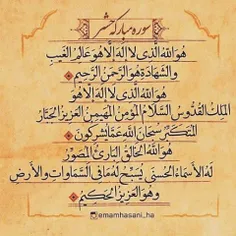 سوره مبارکه حشر
هُوَ اللهُ الَّذِي لَا إِلَهَ إِلَّا هُوَ عَالِمُ الْغَيْبِ
وَالشَّهَادَةِ هُوَ الرَّحْمَنُ الرَّحِيمُ
هُوَ اللهُ الَّذِي لَا إِلَهَ إِلَّا هُوَ
الْمَلِكُ الْقُدُّوسُ السَّلَامُ الْمُؤْمِنُ الْمُهَيْمِنُ الْعَزِيزُ الْجَبَّارُ
الْمُتَكَبِّرُ سُبْحَانَ اللهِ عَمَّا يُشْرِكُونَ
هُوَ اللهُ الْخَالِقُ الْبَارِئُ الْمُصَوِّرُ
لَهُ الْأَسْمَاءُ الْحُسْنَى يُسَبِّحُ لَهُ مَا فِي السَّمَاوَاتِ وَالْأَرْضِ
وَهُوَ الْعَزِيزُ الْحَكِيمُ
@emamhasani_ha